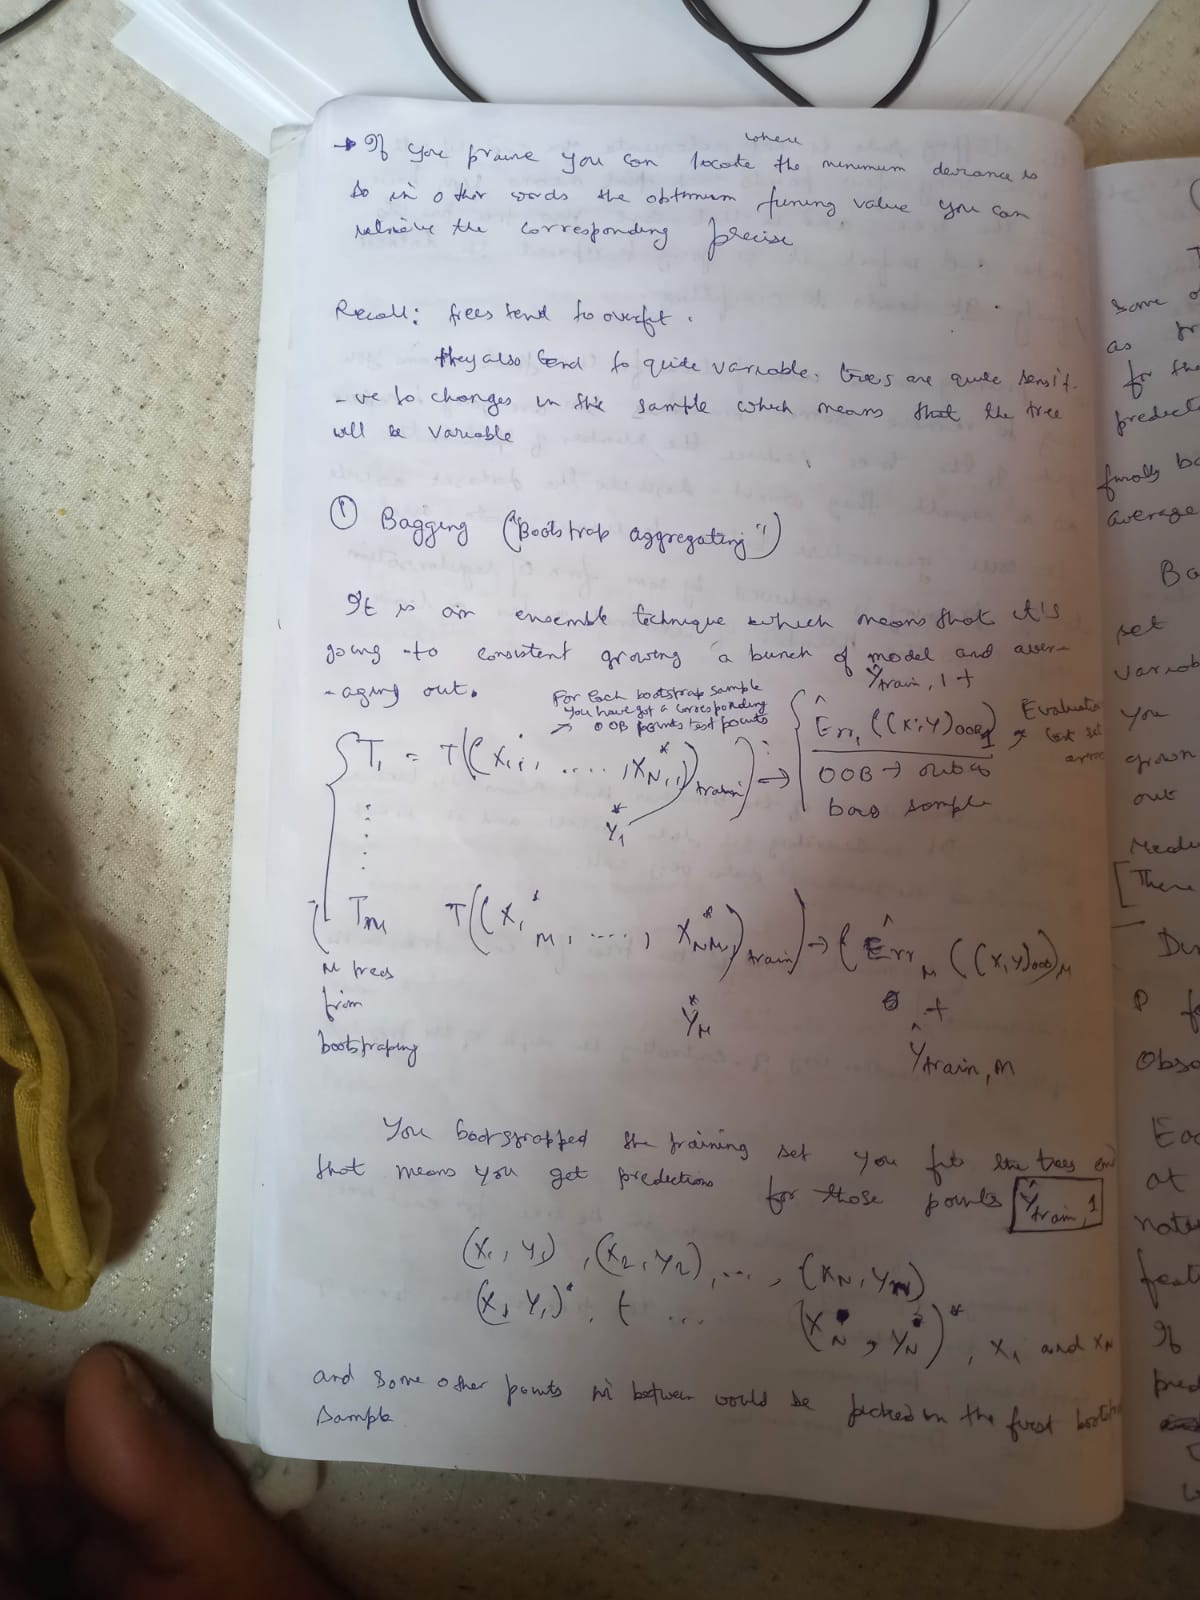 where
→ If you prune you can locate the minimum deviance is
so in other words the optimum tuning value you can
retrieve the corresponding precise
Recall: trees tend to overfit.
they also tend to quite variable. trees are quite sensit-
-ve to changes in the sample which means that the tree
will be variable
① Bagging ("Bootstrap aggregating")
It is an ensemble technique which means that it's
going to consistent growing a bunch of model and aver-
-aging out.
For each bootstrap sample
you have got a corresponding
→ OOB points test points
Ŷtrain, 1 +
T1 = T((X1,1, ...., XN,1*)train) → Êrr1 ((X,Y)OOB)1
Y1*
Evaluation
test set
error
OOB → out of
bag sample
TM T((X1*M, ...., XNM*)train) → { ÊrrM ((X,Y)OOB)M
M trees
from
bootstraping
YM*
+
Ŷtrain, M
You bootstrapped the training set you fit the trees and
that means you get predictions for those points Ŷtrain, 1
(X1, Y1), (X2, Y2), ..., (XN, YN)
(X1 Y1)*, ( ... (XN, YN)*, X1 and XN
and some other points in between would be picked in the first
sample
Some
as
for the
predict
finally
average
set
you
grown
out
[There
P
at
If